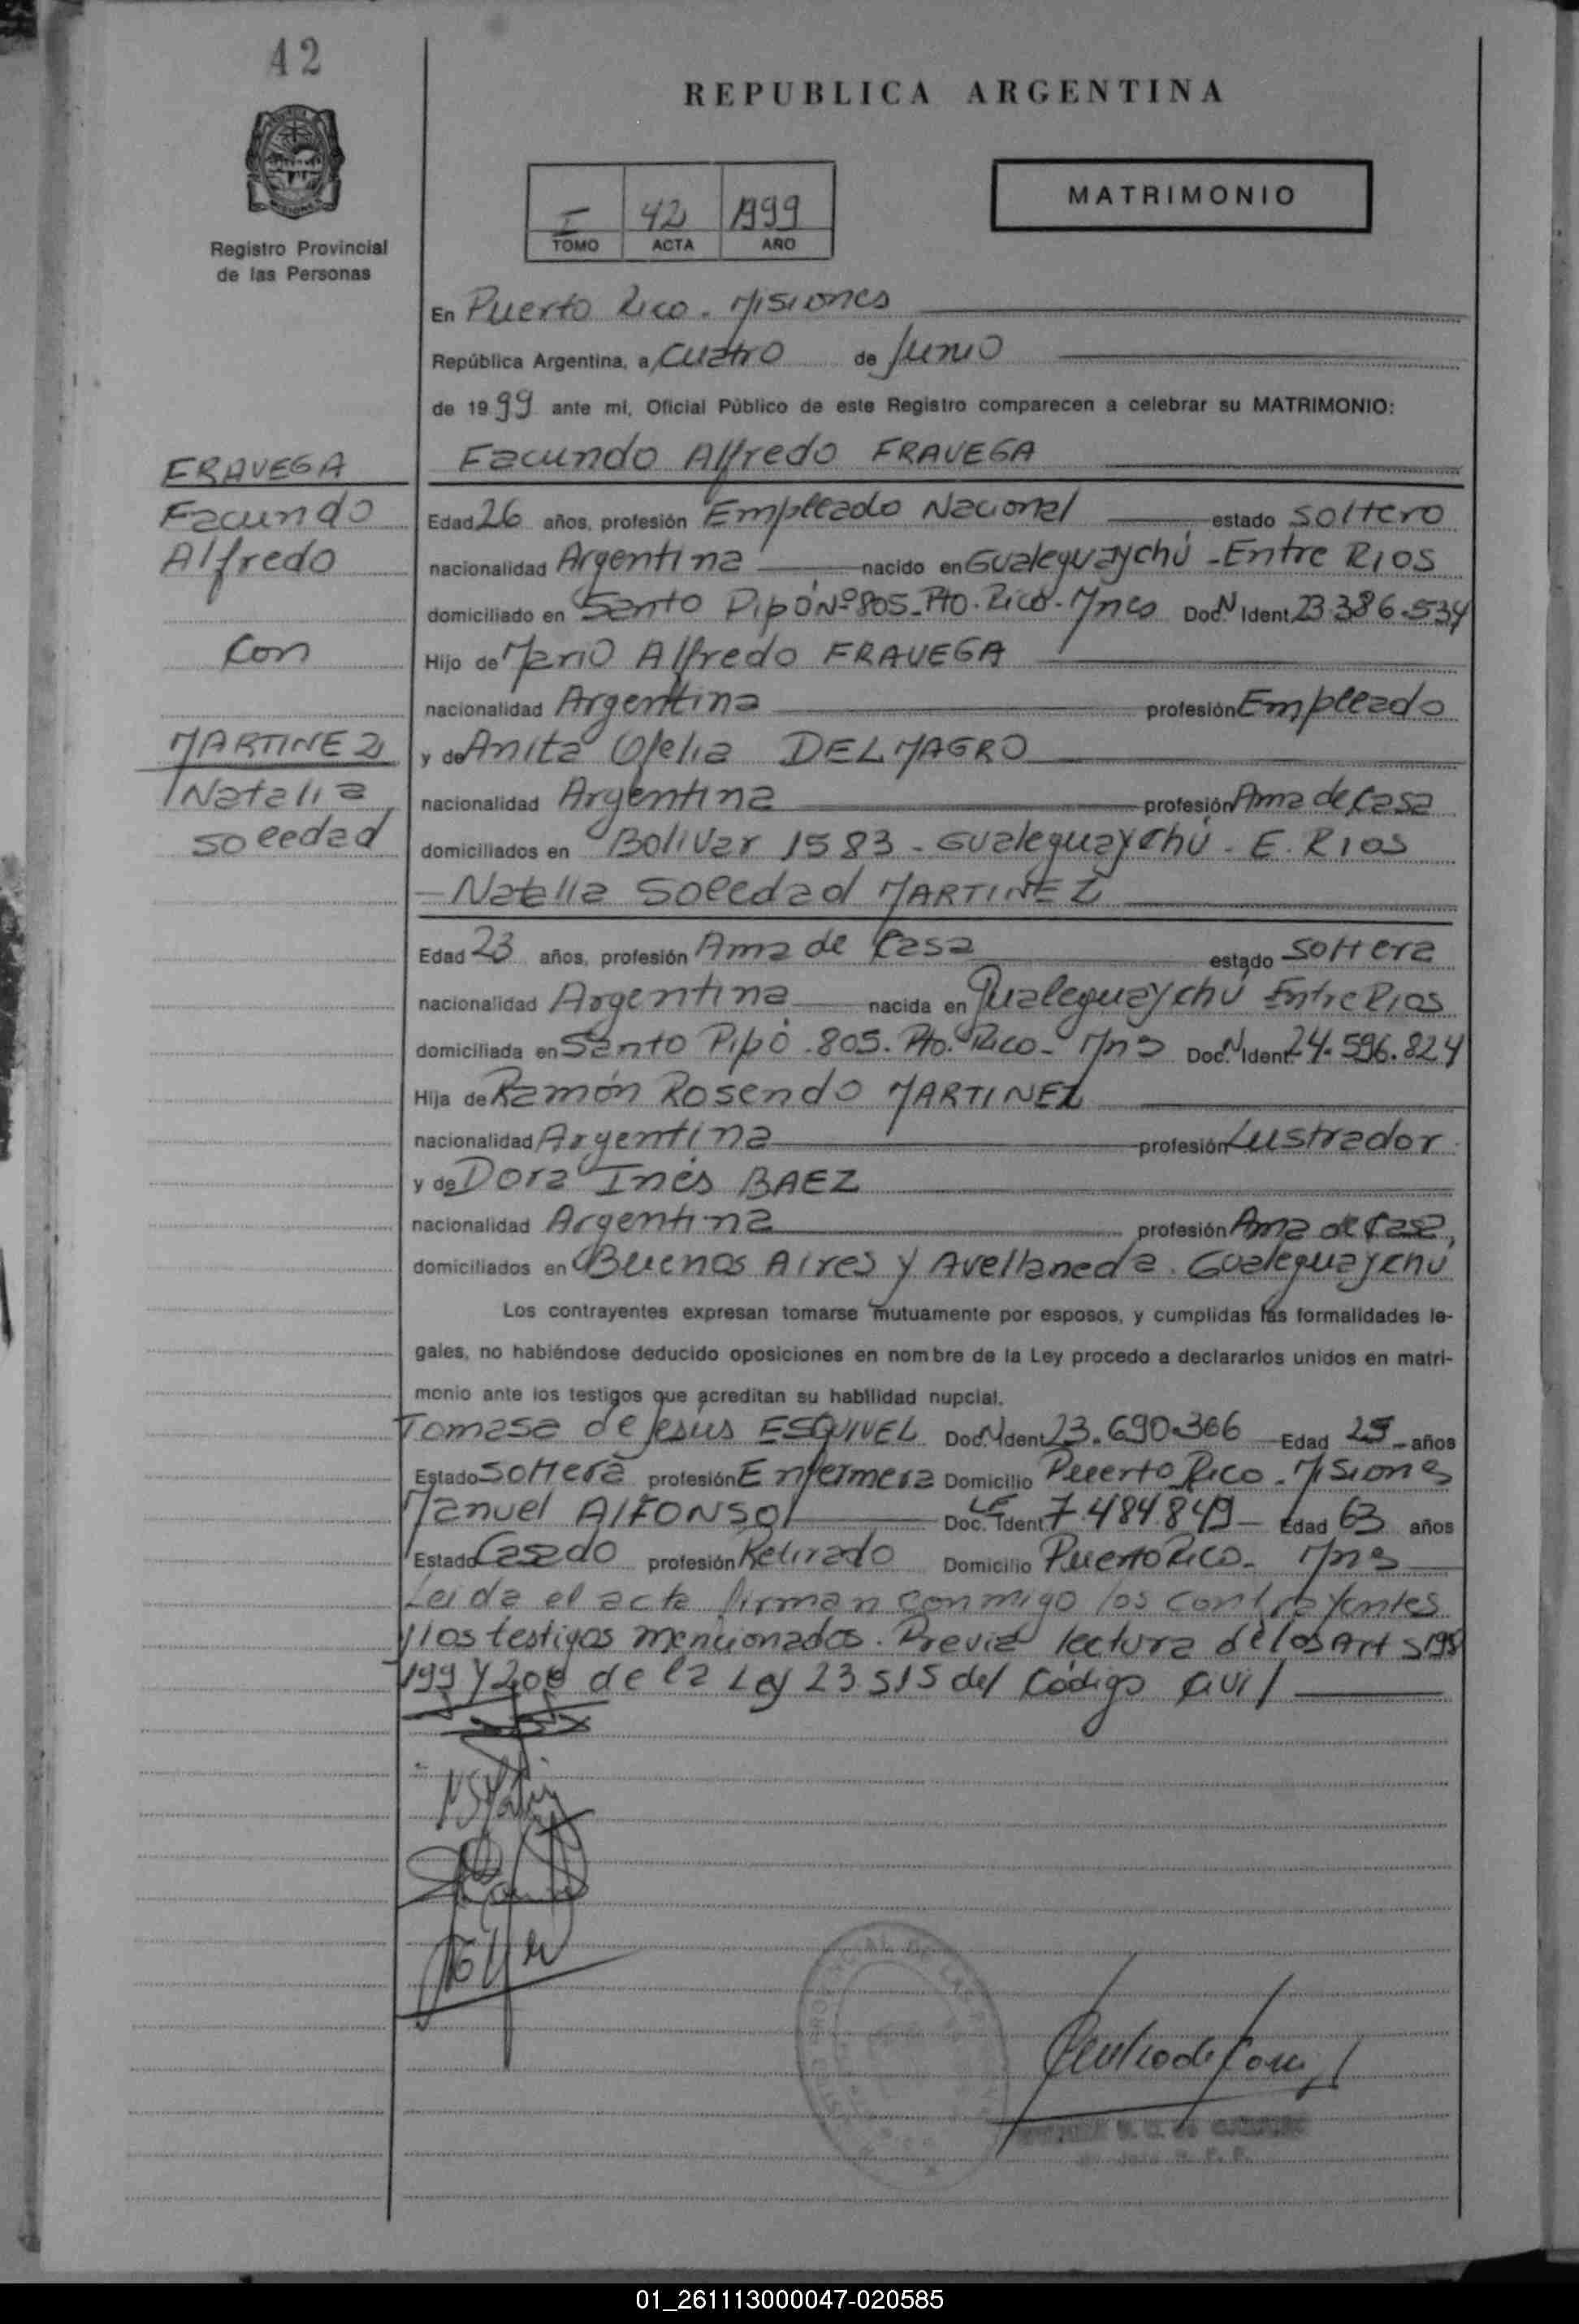 42
REPUBLICA ARGENTINA
MATRIMONIO
I 42 1999
TOMO ACTA AÑO
Registro Provincial
de las Personas
En Puerto Rico - Misiones
República Argentina, a Cuatro de Junio
de 1999 ante mí, Oficial Público de este Registro comparecen a celebrar su MATRIMONIO:
FRAVEGA
Facundo
Alfredo
Con
MARTINEZ
Natalia
Soledad
Facundo Alfredo FRAVEGA
Edad 26 años, profesión Empleado Nacional estado soltero
nacionalidad Argentina nacido en Gualeguaychú - Entre Rios
domiciliado en Santo Pipó Nº 805 - Pto. Rico - Mnes Doc. N. Ident. 23.386.534
Hijo de Mario Alfredo FRAVEGA
nacionalidad Argentina profesión Empleado
y de Anita Ofelia DELMAGRO
nacionalidad Argentina profesión Ama de Casa
domiciliados en Bolivar 1583 - Gualeguaychú - E. Rios
Natalia Soledad MARTINEZ
Edad 23 años, profesión Ama de Casa estado soltera
nacionalidad Argentina nacida en Gualeguaychú Entre Rios
domiciliada en Santo Pipó . 805 . Pto. Rico - Mns Doc. N. Ident. 24.596.824
Hija de Ramón Rosendo MARTINEZ
nacionalidad Argentina profesión Lustrador
y de Dora Inés BAEZ
nacionalidad Argentina profesión Ama de Casa,
domiciliados en Buenos Aires y Avellaneda . Gualeguaychú
Los contrayentes expresan tomarse mutuamente por esposos, y cumplidas las formalidades le-
gales, no habiéndose deducido oposiciones en nombre de la Ley procedo a declararlos unidos en matri-
monio ante los testigos que acreditan su habilidad nupcial.
Tomasa de Jesús ESQUIVEL Doc. N. Ident. 23.690.366 Edad 25 años
Estado soltera profesión Enfermera Domicilio Puerto Rico - Misiones
Manuel ALFONSO Doc. LE Ident. 7.484.849 Edad 63 años
Estado Casado profesión Retirado Domicilio Puerto Rico - Mns
Leída el acta firman conmigo los contrayentes
y los testigos mencionados. Previa lectura de los Art s 198
199 y 200 de la Ley 23.515 del Código Civil
01_261113000047-020585